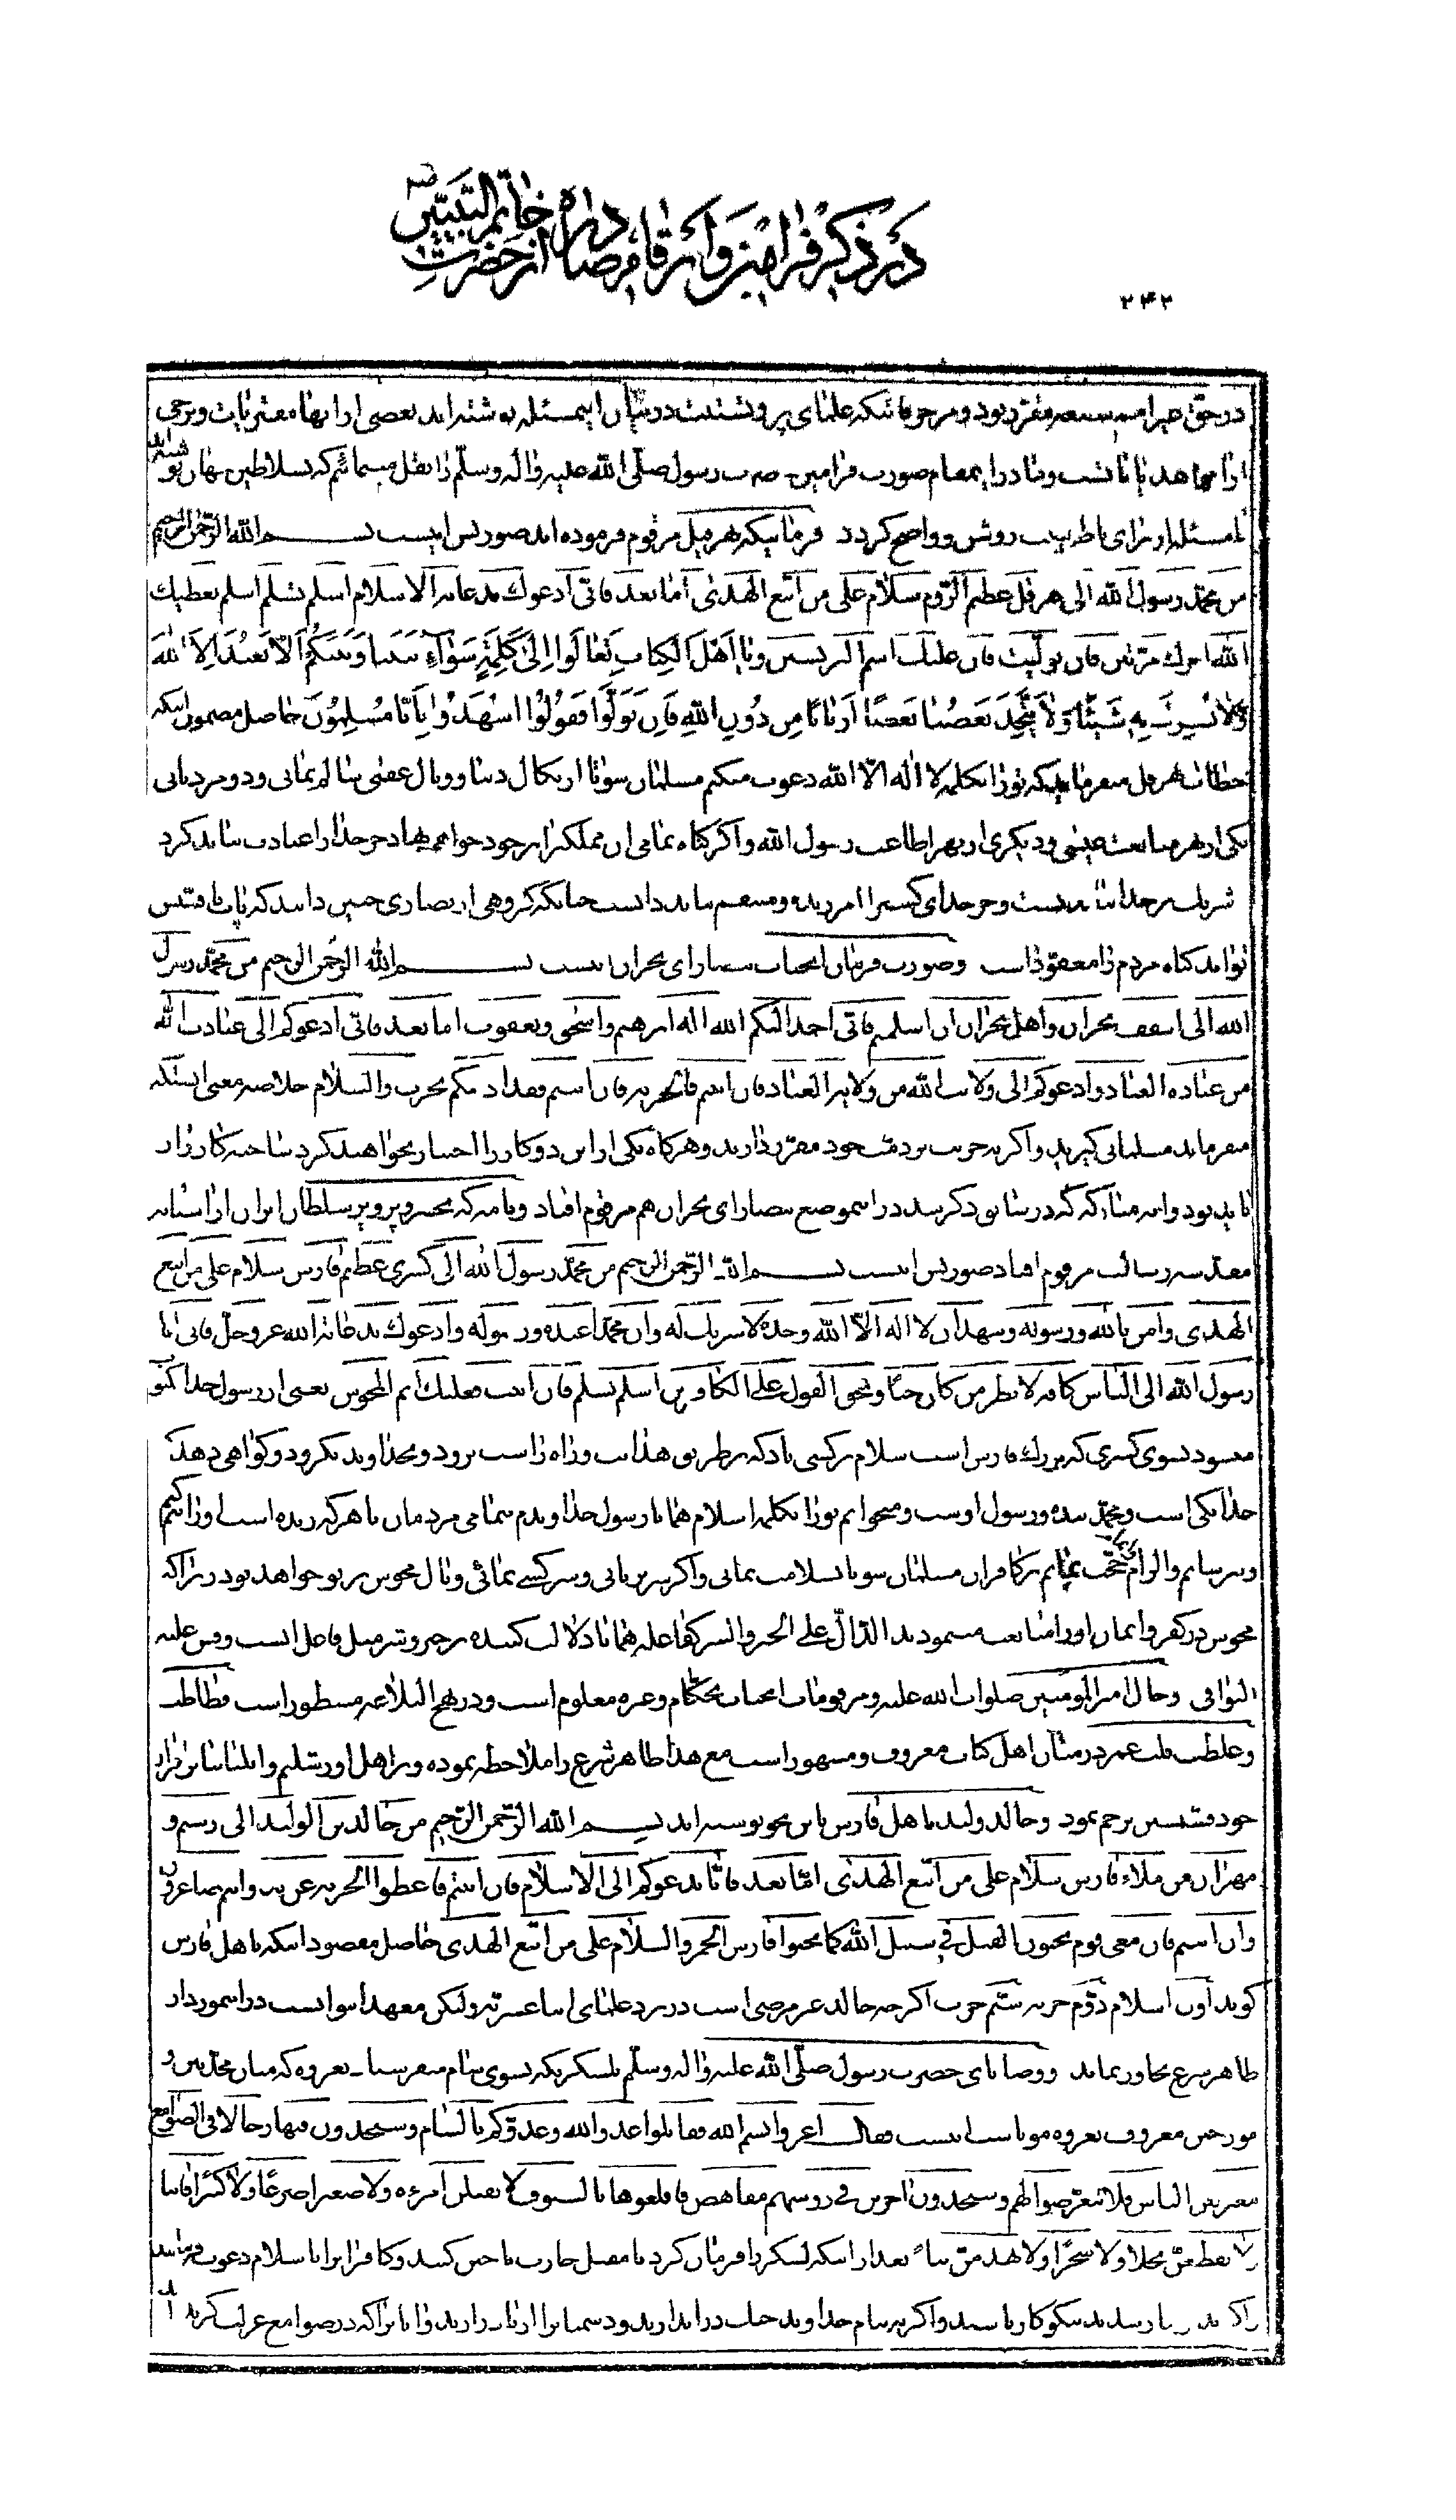 در ذکر فرامین و ارقام صادره از حضرت خاتم النبیین ص
۲۴۲
در حق مقرر بود و مرحوما بلکه علمای پروتستنت در بیان این مسئله نوشته‌اند بعضی او را بهتا مفتریات و برخی
او را مجاهد نشاید و ما در این مقام صورت فرامین حضرت رسول صلی الله علیه و اله وسلم را نقل مینمائیم که بسلاطین جهان نوشته‌اند
تا مسئله از برای ناظر روشن و واضح گردد فرمانیکه بهرقل مرقوم فرموده‌اند صورتش اینست بسم الله الرحمن الرحیم
من محمد رسول الله الی هرقل عظیم الروم سلام علی من اتبع الهدی اما بعد فانی ادعوک بدعایه الاسلام اسلم تسلم اسلم یعطیک
الله اجرک مرتین فان تولیت فان علیک اثم الریسین و یا اَهْلَ الْکِتابِ تَعالَوا اِلی کَلِمَةٍ سَوآءٍ بَیْنَنا وَبَیْنَکُمْ اَلّا نَعْبُدَ اِلاَّ اللهَ
وَلا نُشْرِکَ بِهِ شَیْئًا وَلا یَتَّخِذَ بَعْضُنا بَعْضًا اَرْبابًا مِن دُونِ اللهِ فَاِن تَوَلَّوا فَقُولُوا اشْهَدُوا بِاَنّا مُسْلِمُونَ حاصل مضمون اینکه
خطاب بهرقل میفرماید که تو را بکلمه لا اله الا الله دعوت میکنم مسلمان شو تا از نکال دنیا و وبال عقبی سالم بمانی و دو مزد یابی
یکی از بهر متابعت عیسی و دیگری از بهر اطاعت رسول الله و اگر گناه تمامی ان مملکت را بر خود خواهی نهاد جز خدا را عبادت نباید کرد
شریک بر خدا نباید بست و جز خدای کسی را امر پذیر و منعم نباید دانست چنانکه گروهی از نصاری چنین دانند که پاپ یا قسیس
تواند گناه مردم را معفو داشت وصورت فرمان انجناب بنصارای نجران اینست بسم الله الرحمن الرحیم من محمد رسول
الله الی اسقف نجران و اهل نجران ان اسلمتم فانی احمد الیکم الله اله ابرهیم و اسحق و یعقوب اما بعد فانی ادعوکم الی عبادت الله
من عباده العباد و ادعوکم الی ولایت الله من ولایه العباد فان ابیتم فالجزیه فان ابیتم فقد اذنتکم بحرب والسلام خلاصه معنی اینکه
میفرماید مسلمانی گیرید و اگر نه جزیت بر ذمت خود مقرر دارید و هرگاه یکی از این دو کار را اختیار نخواهید کرد ساخته کارزار
باید بود در این موضع نصارای نجران هم مرقوم افتاد و نامه که بخسرو پرویز سلطان ایران از استانه
مقدسه رسالت مرقوم افتاد صورتش اینست بسم الله الرحمن الرحیم من محمد رسول الله الی کسری عظیم فارس سلام علی من اتبع
الهدی و امن بالله و رسوله و شهد ان لا اله الا الله وحده لا شریک له و ان محمدا عبده و رسوله و ادعوک بدعایه الله عز و جل فانی انا
رسول الله الی الناس کافه لانذر من کان حیا و یحق القول علی الکافرین اسلم تسلم فان ابیت فعلیک اثم المجوس یعنی از رسول خدا مکتوب
میشود بسوی کسری که بزرگ فارس است سلام بر کسی باد که بر طریق هدایت و راه راست برود و بخداوند بگرود و گواهی دهد که
خدا یکی است و محمد بنده و رسول اوست و میخوانم تو را بکلمه اسلام همانا رسول خداوندم بتمامی مردمان تا هر که زنده است او را بیم کنم
و بترسانم و الزام حجت نمایم بر کافران مسلمان شو تا بسلامت بمانی و اگر سر برتابی و سرکشی نمائی وبال مجوس بر تو خواهد بود زیرا که
مجوس در کفر و ایمان او را متابعت مینمودند الدال علی الخیر و الشر کفاعله همانا دلالت کننده بر خیر و شر مثل فاعل است و قس علیه
البواقی و حال امیر المؤمنین صلوات الله علیه و مرقومات انجناب بحکام و غیره معلوم است و در نهج البلاغه مسطور است فظاظت
و غلظت قلب عمر در میان اهل کتاب معروف و مشهور است مع هذا ظاهر شرع را ملاحظه نموده و بر اهل اورشلیم و ایلیا بنابر اقرار
خود قسیسین ترحم نمود و خالد ولید باهل فارس باین نحو نوشته‌اند بسم الله الرحمن الرحیم من خالد بن الولید الی رستم و
مهران من ملاء فارس سلام علی من اتبع الهدی اما بعد فانا ندعوکم الی الاسلام فان ابیتم فاعطوا الجزیه عن ید و انتم صاغرون
وان ابیتم فان معی قوم یحبون القتل فی سبیل الله کما یحبوا فارس الخمر والسلام علی من اتبع الهدی حاصل مقصود اینکه باهل فارس
گوید اول اسلام دوم جزیه سیم حرب اگرچه خالد غیر مرضی است در نزد علمای اثنا عشریه ولیکن معهذا نتوانست در این مورد از
ظاهر شرع تجاوز نماید و وصایای حضرت رسول صلی الله علیه و اله وسلم بلشکریکه بسوی شام میفرستاد بغزوه که میان محدثین و
مورخین معروف بغزوه موتا است اینست فقال اغزوا بسم الله فقاتلوا عدو الله و عدوکم بالشام و ستجدون فیها رجالا فی الصوامع
معتزلین الناس فلا تتعرضوا لهم و ستجدون اخرین فی رؤسهم مفاحص فاقلعوها بالسیوف لا تقتلن امرءه ولا صغیرا ضرعا ولا کبیرا فانیا
ولا تقطعن نخلا ولا شجرا ولا تهدمن بناء بعد از اینکه لشکر را فرمان کرد و کافران را باسلام دعوت